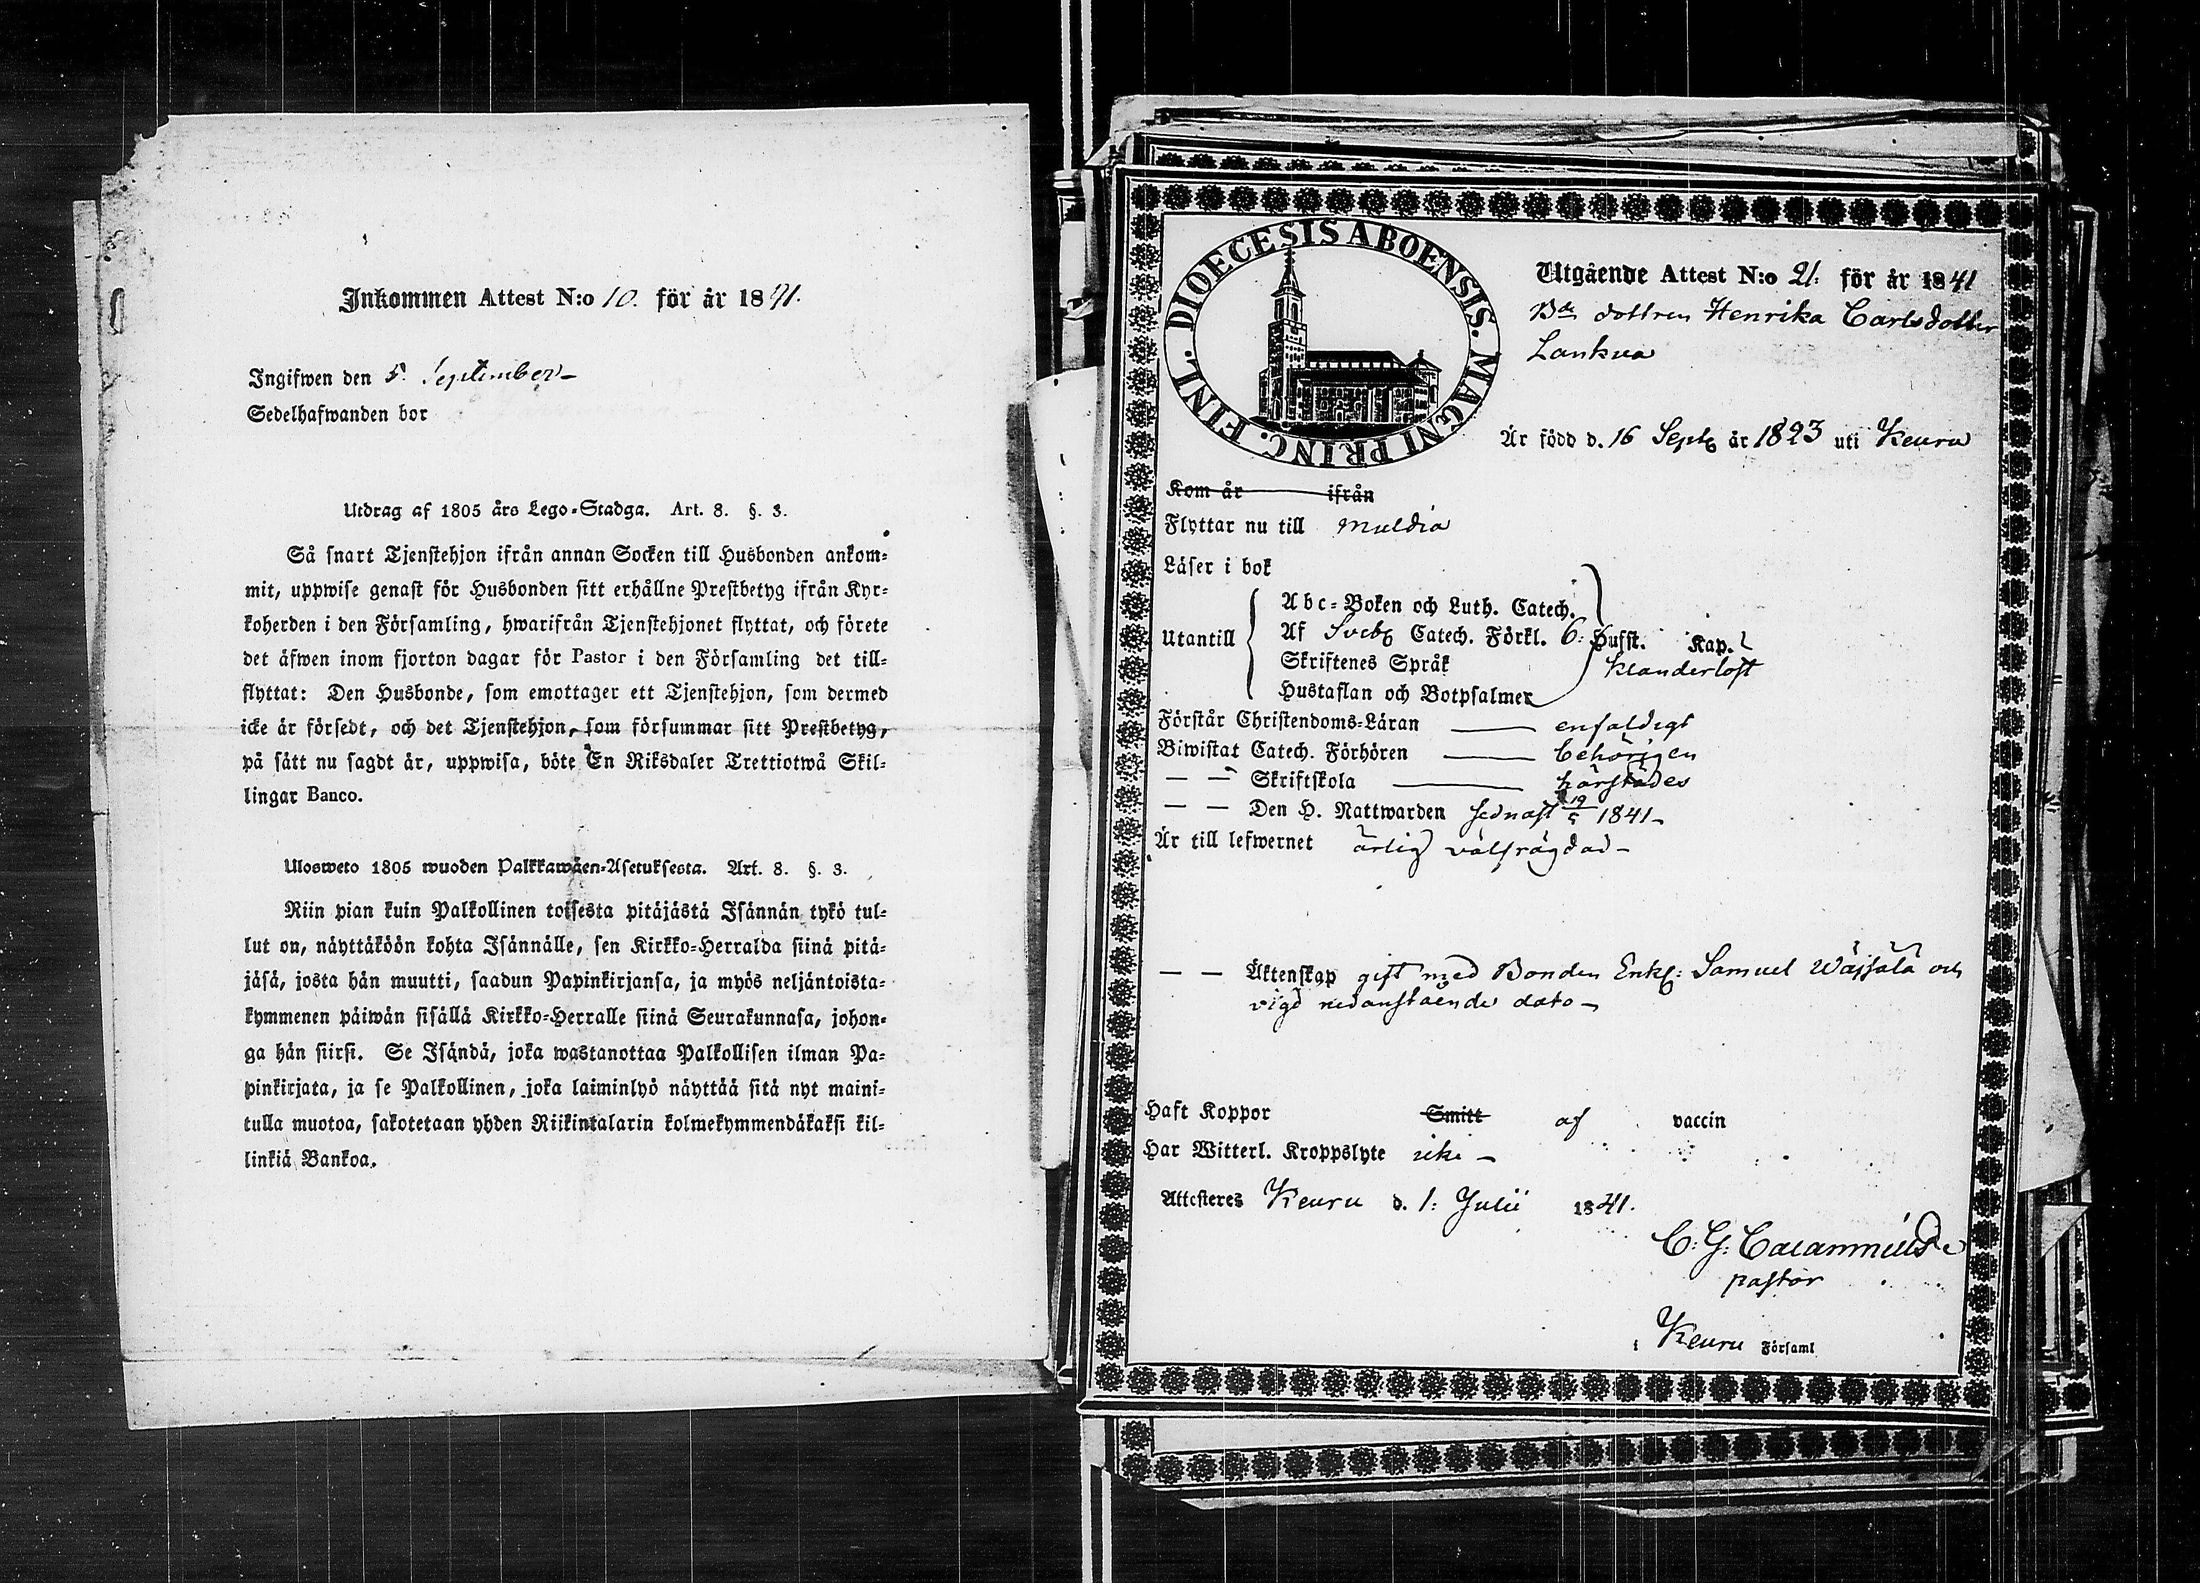 Inkommen Attest N:o 10. för år 1841.
Ingifwen den 5. September
Sedelhafwanden bor
Utdrag af 1805 års Lego-Stadga. Art. 8. §. 3.
Så snart Tjenstehjon ifrån annan Socken till Husbonden ankom-
mit, uppwise genast för Husbonden sitt erhållne Prestbetyg ifrån Kyr-
koherden i den Församling, hwarifrån Tjenstehjonet flyttat, och förete
det äfwen inom fjorton dagar för Pastor i den Församling det till-
flyttat: Den Husbonde, som emottager ett Tjenstehjon, som dermed
icke är försedt, och det Tjenstehjon, som försummar sitt Prestbetyg,
på sätt nu sagdt är, uppwisa, böte En Riksdaler Trettiotwå Skil-
lingar Banco.
Ulosweto 1805 wuoden Palkkawäen-Asetuksesta. Art. 8. §. 3.
Niin pian kuin Palkollinen toisesta pitäjästä Isännän tykö tul-
lut on, näyttäköön kohta Isännälle, sen Kirkko-Herralda siinä pitä-
jäsä, josta hän muutti, saadun Papinkirjansa, ja myös neljäntoista-
kymmenen päiwän sisällä Kirkko-Herralle siinä Seurakunnasa, johon-
ga hän siirsi. Se Isändä, joka wastanottaa Palkollisen ilman Pa-
pinkirjata, ja se Palkollinen, joka laiminlyö näyttää sitä nyt maini-
tulla muotoa, sakotetaan yhden Riikintalarin kolmekymmendäkaksi kil-
linkiä Bankoa.
DIOECESIS ABOENSIS. MAGNI PRINC. FINL.
Utgående Attest N:o 21. för år 1841
Bde dottren Henrika Carlsdotter
Lankua
Är född d. 16 Septr år 1823 uti Keuru
Kom år ifrån
Flyttar nu till Muldia
Läser i bok
Abc-Boken och Luth. Catech.
Utantill Af Sveb Catech. Förkl. 6: Hufst. Kap.
Skriftenes Språk klanderlöst
Hustaflan och Botpsalmer
Förstår Christendoms-Läran enfaldigt
Biwistat Catech. Förhören behörigen
— — Skriftskola härstädes
— — Den H. Nattwarden sednast 19/5 1841
Är till lefwernet ärlig välfrägdad
— — Äktenskap gift med Bonden Enkl: Samuel Wäfsälä och
vigd nedanstående dato
Haft Koppor Smitt af vaccin
Har Witterl. Kroppslyte icke
Attesteres Keuru d. 1: Julii 1841.
C: G: Calamnius
pastor
i Keuru Församl